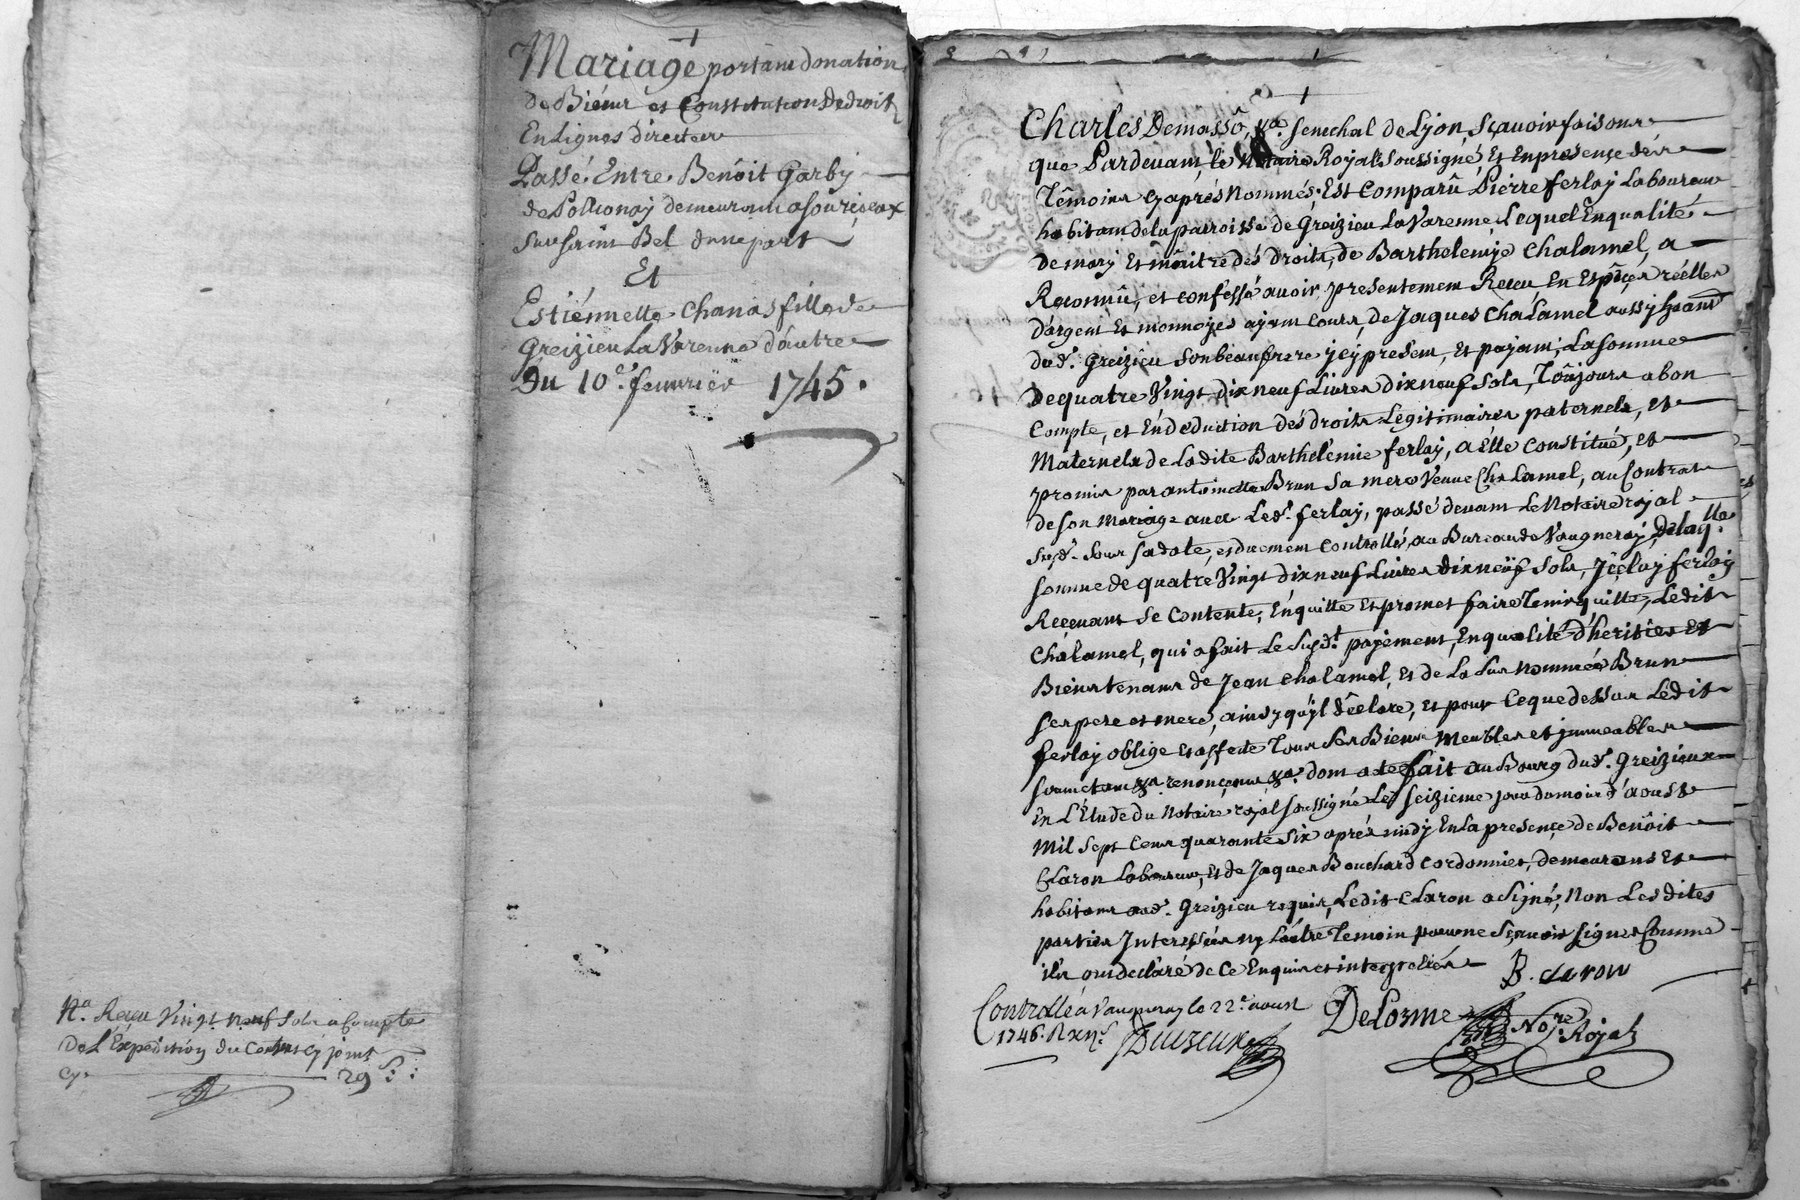 Mariage portant donation
de Biens et Constitution de droits
En Lignes directes
Passé Entre Benoit Garby
de Pollionay demeurant a sourcieux
sur saint Bel d'une part
Et
Estiennette Chanas fille de
Greizieu La Varenne d'autre
Du 10e. feuvrier 1745.
Na. Receu Vingt neuf sols a Compte
De L'Expedition du Contrat cy joint
cy. 29 s:
Charles Demasso, &a. senechal de Lyon sçavoir faisons
que Pardevant le Notaire Royal soussigné, Et En presence des
Témoins cy aprés Nommés, Est Comparû Pierre ferlay Laboureur
habitant de la parroisse de Greizieu La Varenne, Lequel En qualité
de mary Et maître dés droits, de Barthelemye Chalamel, a
Reconnû, et confessé avoir presentement Receu En Espêces réelles
d'argent Et monnoyes ayant cours, de Jaques Chalamel aussy habitant
dud. Greizieu son beaufrere jcy present, Et payant, La somme
de quatre Vingt dix neuf Livres dix neuf sols, Toûjours a bon
Compte, et En déduction dés droits Legitimaires paternels, et
Maternels de Ladite Barthelemie ferlay, a Elle Constitué, et
promis par antoinette Brun sa mere Veuve Chalamel, au Contrat
de son Mariage avec Led. ferlay, passé devant Le Notaire royal
susd. sous sa date, et duement Controllé, au Bureau de Vaugneray, De laqlle
somme de quatre Vingt dix neuf Livres dix neüf sols, Jçeluy ferlay
Recevant se Contente, En quitte Et promet faire Tenir quitte, Ledit
Chalamel, qui a fait Le susdt. payement, En qualité d'heritier Et
Biens tenant de Jean Chalamel, Et de La sus nommée Brun
ses pere et mere, ainsy qu'jl déclare, Et pour Ce que dessus Ledit
ferlay oblige Et affecte Tous ses Biens Meubles et jmmeubles
soumettant &a. renonçant &a. dont acte fait au Bourg dud. Greizieux
En L'Etude du Notaire royal soussigné Le seizieme jour du mois d'aoust
Mil sept Cens quarante six aprés midy En La presence de Benoit
Claron Laboureur, Et de Jaques Bouchard Cordonnier, demeurans Et
habitans aud. Greizieu requis, Ledit Claron a signé, Non Les dites
parties Interessées ny L'autre Temoin pour ne sçavoir signer Comme
ils ont declaré de Ce Enquis et interpellés
B. claron
Controllé a Vaugneray le 22e. aoust
1746.
DeLorme
Nore.
Royal